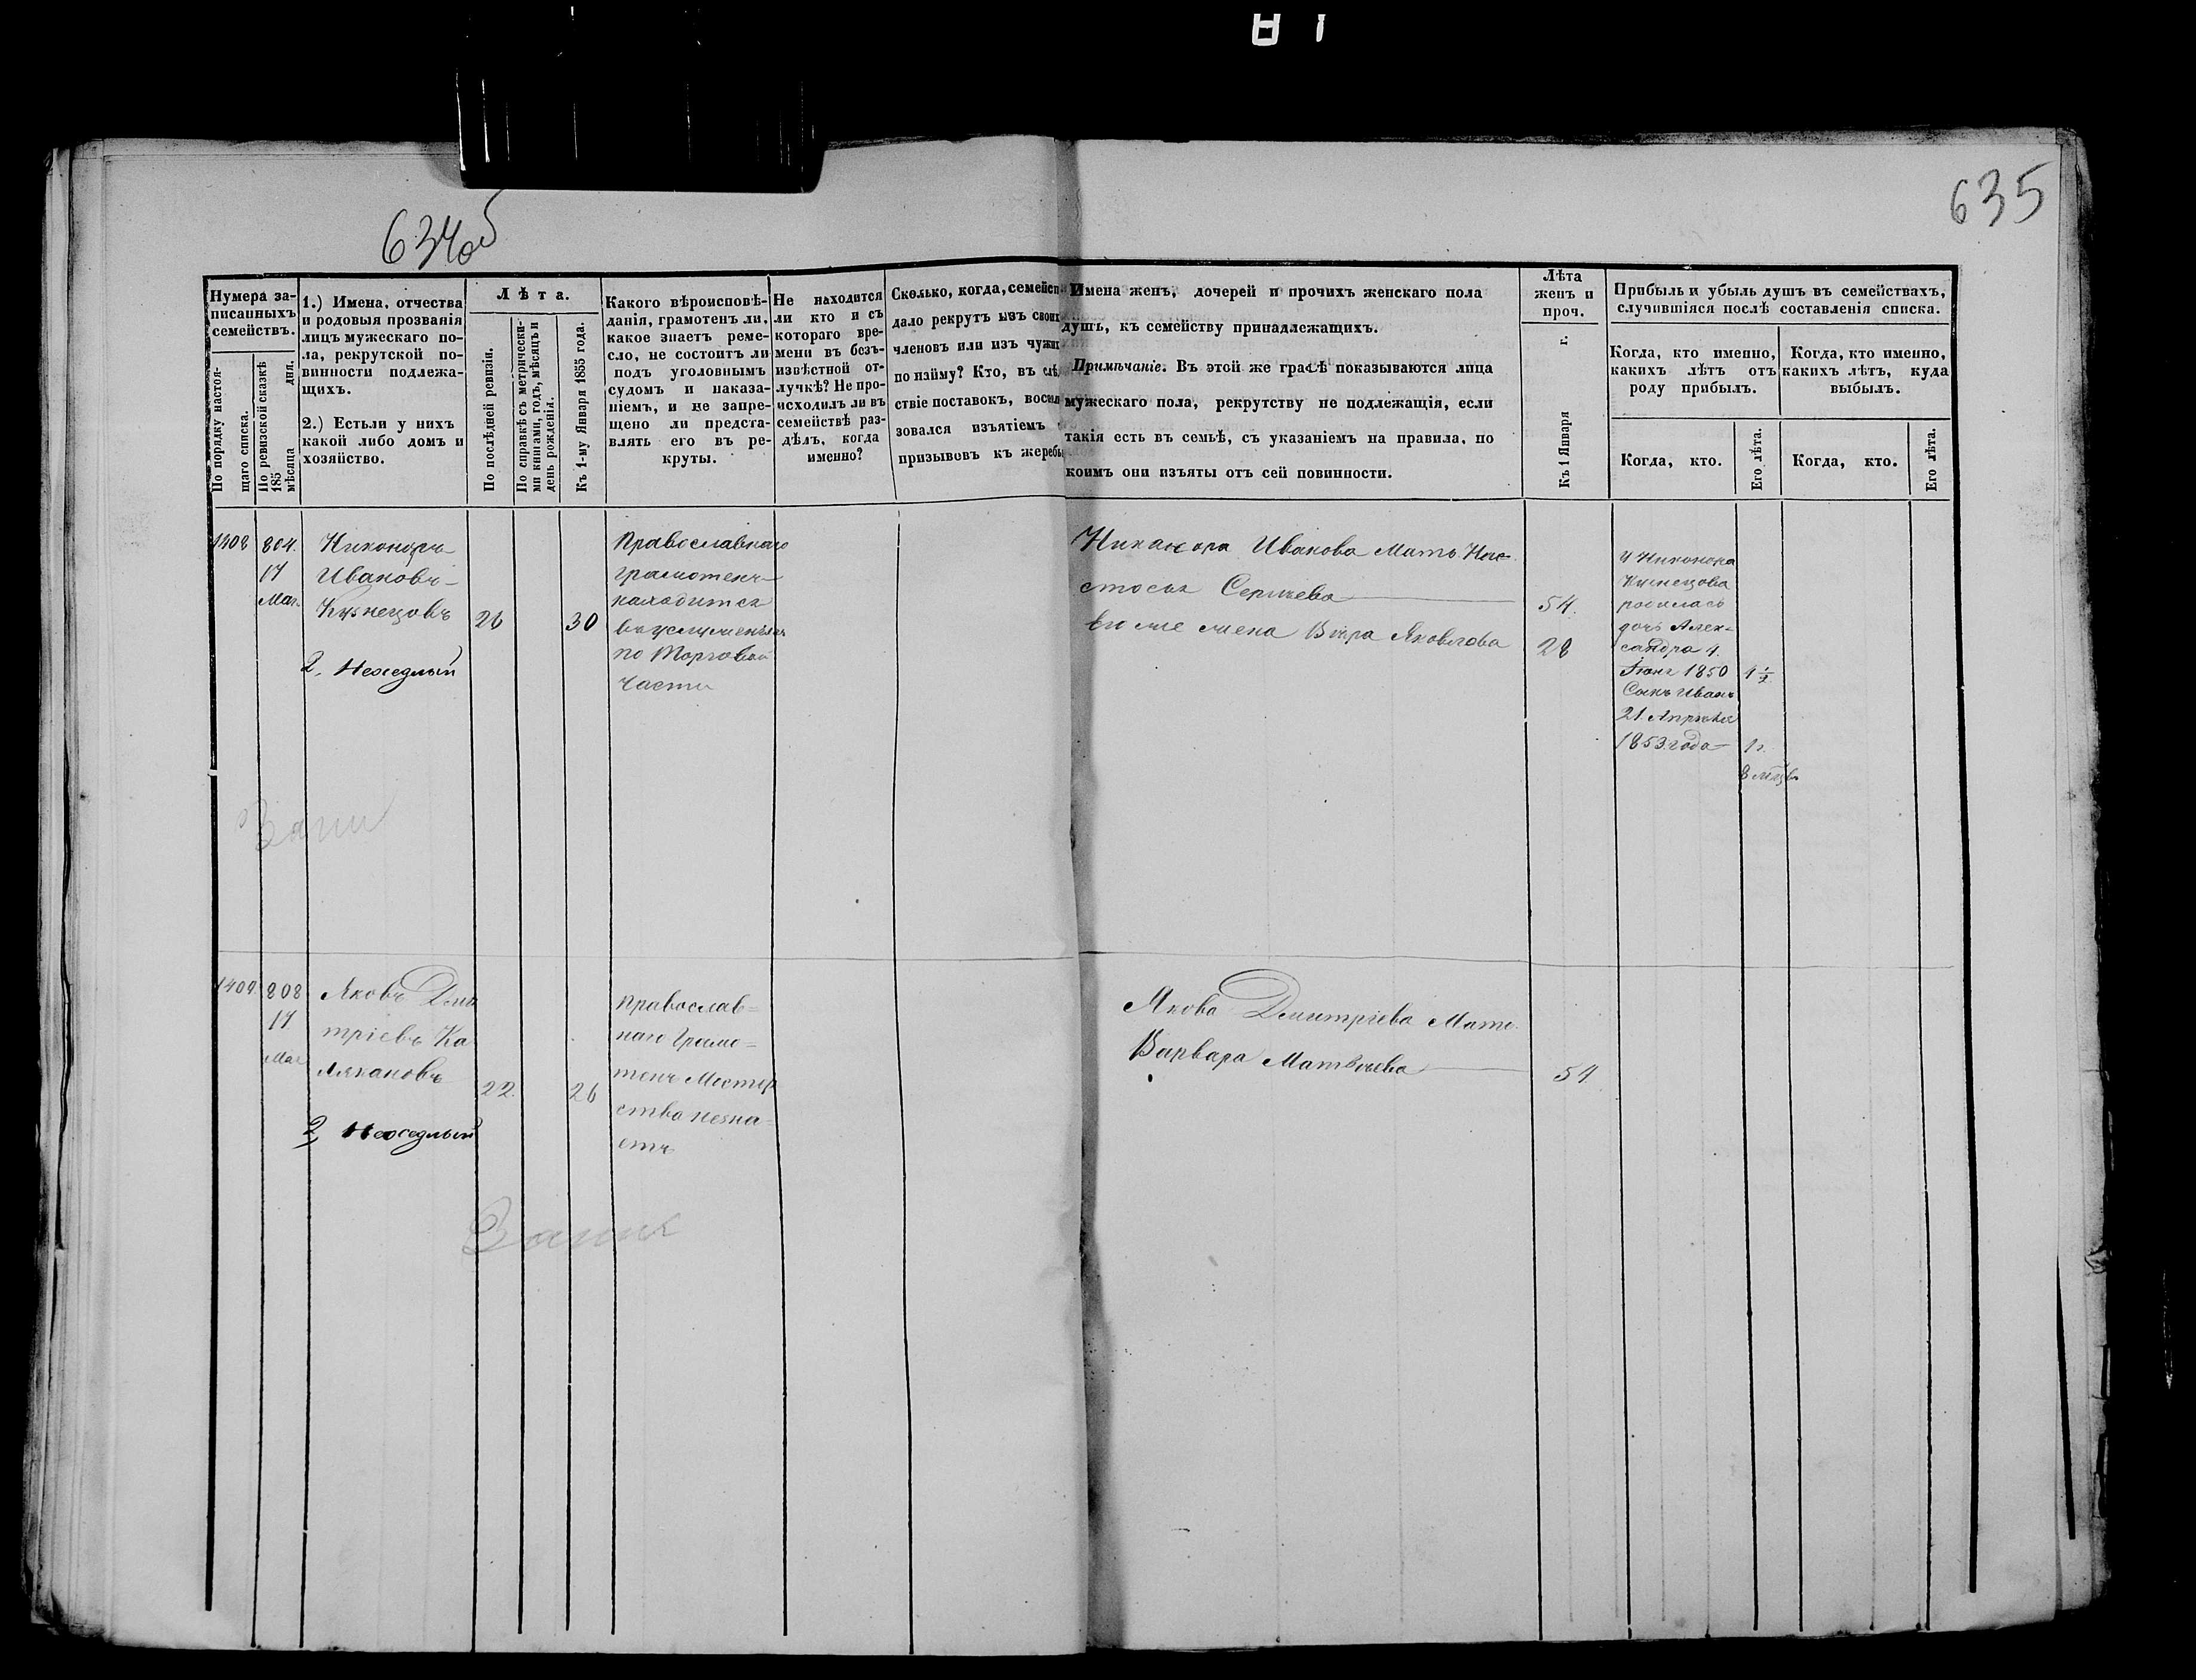 634об
635
Нумера за-
писанныхъ
семействъ.
По порядку настоя-
щаго списка.
По ревизской сказкѣ
185 дня.
мѣсяца
1.) Имена, отчества
и родовыя прозванія
лицъ мужескаго по-
ла, рекрутской по-
винности подлежа-
щихъ.
2.) Естьли у нихъ
какой либо домъ и
хозяйство.
Лѣта.
По послѣдней ревизіи.
По справкѣ съ метрически-
ми книгами, годъ, мѣсяцъ и
день рожденія.
Къ 1-му Января 1855 года.
Какого вѣроисповѣ-
данія, грамотенъ ли,
какое знаетъ реме-
сло, не состоитъ ли
подъ уголовнымъ
судомъ и наказа-
ніемъ, и не запре-
щено ли предста-
влять его въ ре-
круты.
Не находится
ли кто и съ
котораго вре-
мени въ безъ-
извѣстной от-
лучкѣ? Не про-
исходилъ ли въ
семействѣ раз-
дѣлъ, когда
именно?
Сколько, когда, семейст-
дало рекрутъ изъ своих
членовъ или изъ чужих
по найму? Кто, въ слѣд
ствіе поставокъ, воспол
зовался изъятіемъ
призывовъ къ жеребь
Имена женъ, дочерей и прочихъ женскаго пола
душъ, къ семейству принадлежащихъ.
Примѣчаніе. Въ этой же графѣ показываются лица
мужескаго пола, рекрутству не подлежащія, если
такія есть въ семьѣ, съ указаніемъ на правила, по
коимъ они изъяты отъ сей повинности.
Лѣта
женъ и
проч.
Къ 1 Января г.
Прибыль и убыль душъ въ семействахъ,
случившіяся послѣ составленія списка.
Когда, кто именно,
какихъ лѣтъ отъ
роду прибылъ.
Когда, кто именно,
какихъ лѣтъ, куда
выбылъ.
Когда, кто.
Его лѣта.
Когда, кто.
Его лѣта.
1408
804.
17
Мая.
Никоноръ
Ивановъ
Кузнецовъ
26
30
2. Неоседлый
Православнаго
грамотенъ
находится
въ услуженіи
по Торговой
части
Никанора Иванова Мать Нас-
стосья Сергеева
54.
Его же жена Вѣра Яковлова
28
у Никонора
Кузнецова
родилась
дочь Алек-
сандра 4.
Іюня 1850
4½
Сынъ Иванъ
21 Апреля
1853 года
1 г.
8 мцвъ
1409
808
17
Мая
Яковъ Дми
тріевъ Ка
ляхановъ
22.
26
2, Неоседлый
православ=
наго Грамо=
тенъ Мастер
ства незна
етъ
Якова Дмитріева Мать
Варвара Матвѣева
54